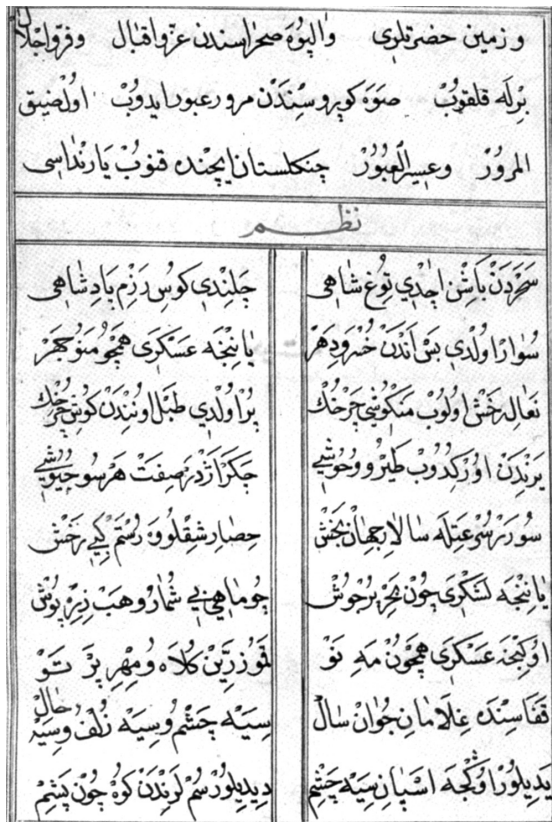 و زمین حضرتلری والپوه صحراسندن عز و اقبال و فر و اجلال
برله قلقوب صوه کوپروسندن مرور عبور ایدوب اول ضیق
المرور وعسیر العبور جنکلستان ایچنده قنوب یارنداسی
نظم
سحردن باش اچدی توغ شاهی چلندی کوس رزم پادشاهی
سوار اولدی پس اندن خسرو دهر یاننجه عسکری همچو منوچهر
نعاله رخش اولوب منکوش چرخک پر اولدی طبل اوننندن کوش چرخک
یرندن اورکدوب طیر و وحوشی چکر اژدر صفت هر سو جیوشی
سورر سرعتله سالار جهان بخش حصار شقلو و رستم کبی رخش
یاننجه لشکری چون بحر پر جوش چو ماهی بی شمار وهب زره پوش
اوکنجه عسکری همچون مه نو زرین کلاه و مهر پر تو
قفاسنده غلامان جوان سال سیه چشم و سیه زلف و سیه خال
یدیلور اوکجه اسپان سیه چشم دیدیلور سم لرندن کوه چون پشم